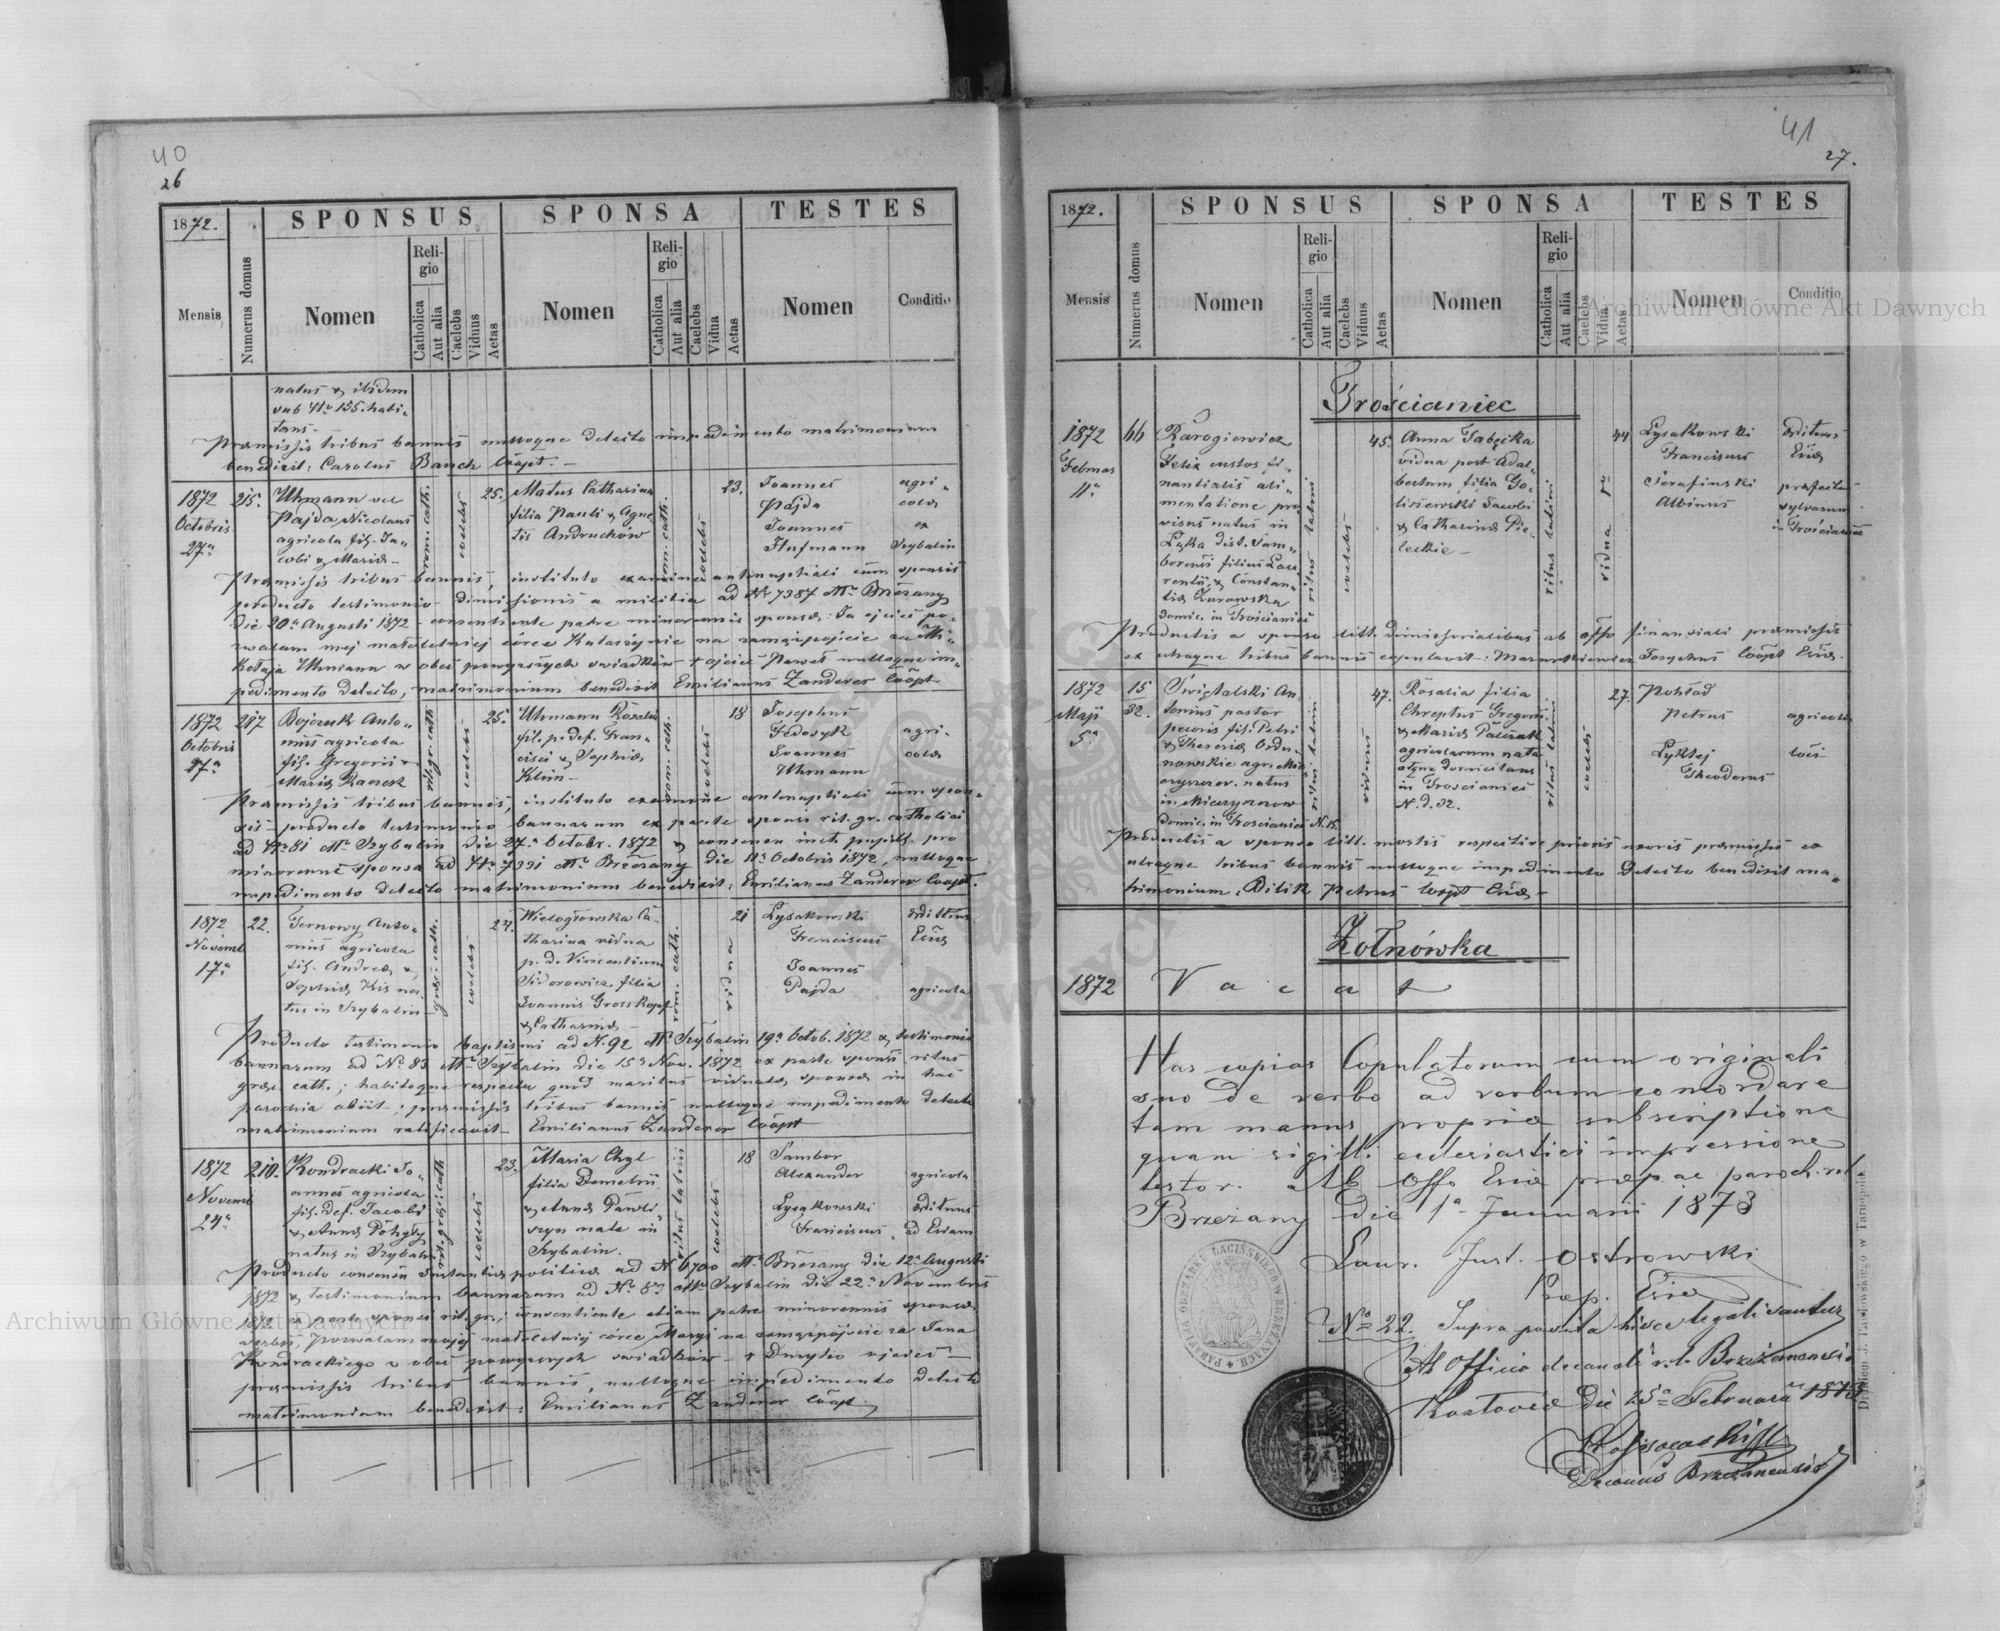 40
26
1872.
SPONSUS SPONSA TESTES
Mensis
Numerus domus
Nomen
Religio
Catholica
Aut alia
Caelebs
Viduus
Aetas
Nomen
Religio
Catholica
Aut alia
Caelebs
Vidua
Aetas
Nomen
Conditio
natus & ibidem
sub No 155. habi-
tans.
Praemissis tribus bannis nulloque detecto impedimento matrimonium
benedixit: Carolus Coopt.
1872
Octobris
27a
215.
Uhmann vel
Pajda Nicolaus
agricola fil. Ja-
cobi & Maria
rom. cath.
coelebs
25.
Matus Catharina
filia Pauli & Agne-
tis Andruchów
rom. cath.
coelebs
23.
Joannes
Pajda
Joannes
Hufmann
agri-
cola
ex
Szybalin
Praemissis tribus bannis, instituto examine antenuptiali cum sponsis
producto testimonio dimissionis a militia ad No 7387 Brzeżany
die 20a Augusti 1872 consentiente patre minorennis sponsae: Ja ojciec po-
zwalam mej małoletniej córce Katarzynie na zamążpójście za Mi-
kołaja Uhmana w obec powyższych swiadków + ojciec Paweł nulloque im-
pedimento detecto, matrimonium benedixit Emilianus Zanderer Coopt
1872
Octobris
27a
217
Bojczuk Anto-
nius agricola
fil. Gregorii &
Maria
rit. gr. cath
coelebs
25.
Uhmann Rosalia
fil. p. def. Fran-
cisci & Sophia
Klim
rom. cath.
coelebs
18
Josephus
Fedosyk
Joannes
Uhmann
agri-
cola
Praemissis tribus bannis, instituto examine antenuptiali cum spon-
sis producto testimonio bannorum ex parte sponsi rit. gr. catholici
ad No 81 Szybalin die 27a Octobr. 1872 & consensu pro
minorenne sponsa ad No 7991 Brzeżany die 11a Octobris 1872, nulloque
impedimento detecto matrimonium benedixit: Emilianus Zanderer Coopt.
1872
Novemb
17a
22.
Ternowy Anto-
nius agricola
fil. Andrea &
Sophia Kis na-
tus in Szybalin
graec. cath.
coelebs
24.
Wielogłowska Ca-
tharina vidua
p. d. Vincentium
Sidorowicz filia
Joannis Grosskopf
& Catharina
rom. cath.
vidua
21
Lysakowski
Franciscus
Joannes
Pajda
Edituus
Ecclae
agricola
Producto testimonio baptismi ad No 92 Szybalin 19a Octob. 1872 & testimonio
bannorum ad No 83 Szybalin die 15a Nov. 1872 ex parte sponsi ritus
graec. cath.; habitoque respectu quod maritus viduata sponsae in hac
parochia obiit; praemissis tribus bannis nulloque impedimento detecto
matrimonium ratificavit Emilianus Zanderer Coopt
1872
Novemb
24a
210.
Kondracki Jo-
annes agricola
fil. def. Jacobi
& Anna
natus in Szybalin
rit. graec. cath
coelebs
23.
Maria Chyl
filia Demetrii
& Anna Pawli-
szyn nata in
Szybalin.
ritus latini
coelebs
18
Sambor
Alexander
Lysakowski
Franciscus
agricola
Edituus
ad Eccam
Producto consensu Instantia politica ad N 6700 Brzeżany die 12a Augusti
1872 & testimonium bannorum ad No 89 Szybalin die 22a Novembris
1872 ex parte sponsi rit. gr.; consentiente etiam patre minorennis sponsae
verbis, Pozwalam mojej małoletniej córce Maryi na zamążpójście za Jana
Kondrackiego w obec powyższych swiadków + Dmytro ojciec
praemissis tribus bannis, nulloque impedimento detecto
matrimonium benedixit: Emilianus Zanderer Coopt.
41
27.
1872.
SPONSUS SPONSA TESTES
Mensis
Numerus domus
Nomen
Religio
Catholica
Aut alia
Caelebs
Viduus
Aetas
Nomen
Religio
Catholica
Aut alia
Caelebs
Vidua
Aetas
Nomen
Conditio
Trościaniec
1872
Februar
11a
66
Rarogiewicz
Felix custos fi-
nantialis ali-
mentatione pro
visus natus in
Łąka dist. Sam-
borensi filius Lau-
rentii & Constan-
tia Zurowska
domic. in Trościaniec
ritus latini
coelebs
45.
Anna Tabęcka
vidua post Adal-
bertum filia Go-
liszewski Jacobi
& Catharina Pie-
leckie
ritus latini
vidua
44
Lysakowski
Franciscus
Serafinski
Albinus
Edituus
Ecclae
praefectus
sylvarum
in Trościaniec
Productis a sponso litt. dimissorialibus ab offo finansiali praemissis
ex utraque tribus bannis copulavit: Mazurkiewicz Josephus Coopt Eccl.
1872
Maji
5a
15
32.
Swiętalski An-
tonius pastor
pecoris fil. Petri
natus
in Mieczyszczow
domic. in Trościaniec N. 15.
ritus latini
viduus
47.
Rosalia filia
Chreptus Gregorii
& Maria Palczak
agricolarum nata
atque domicilians
in Trościaniec
N. d. 32.
ritus latini
coelebs
27.
Pohład
Petrus
Łyktej
Theodorus
agricola
loci
Productis a sponso litt. mortis respective prioris uxoris praemissis ex
utraque tribus bannis nulloque impedimento detecto benedixit ma-
trimonium: Bilik Petrus Coopt Eccl.
Żołnówka
1872
Vacat
Has copias Copulatorum cum originali
suo de verbo ad verbum concordare
tam manus propria subscriptione
quam sigilli ecclesiastici impressione
testor. Ab Offo Eccl. praep. ac paroch. r. l.
Brzeżany die 1a Januarii 1873
Laur. Just. Ostrowski
Praep. Eccl.
No 22. Supra posita hisce legalisantur
Ab Officio decanali r. l. Brzeżanensi
Kozłovia Die 25a Februarii 1873
Decanus Brzezanensis
PARAFIJA OBRZĄDKU ŁACIŃSKIEGO W BRZEŻANACH
Drukiem J. Pawłowskiego w Tarnopolu.
Archiwum Główne Akt Dawnych
Archiwum Główne Akt Dawnych
Archiwum Główne Akt Dawnych